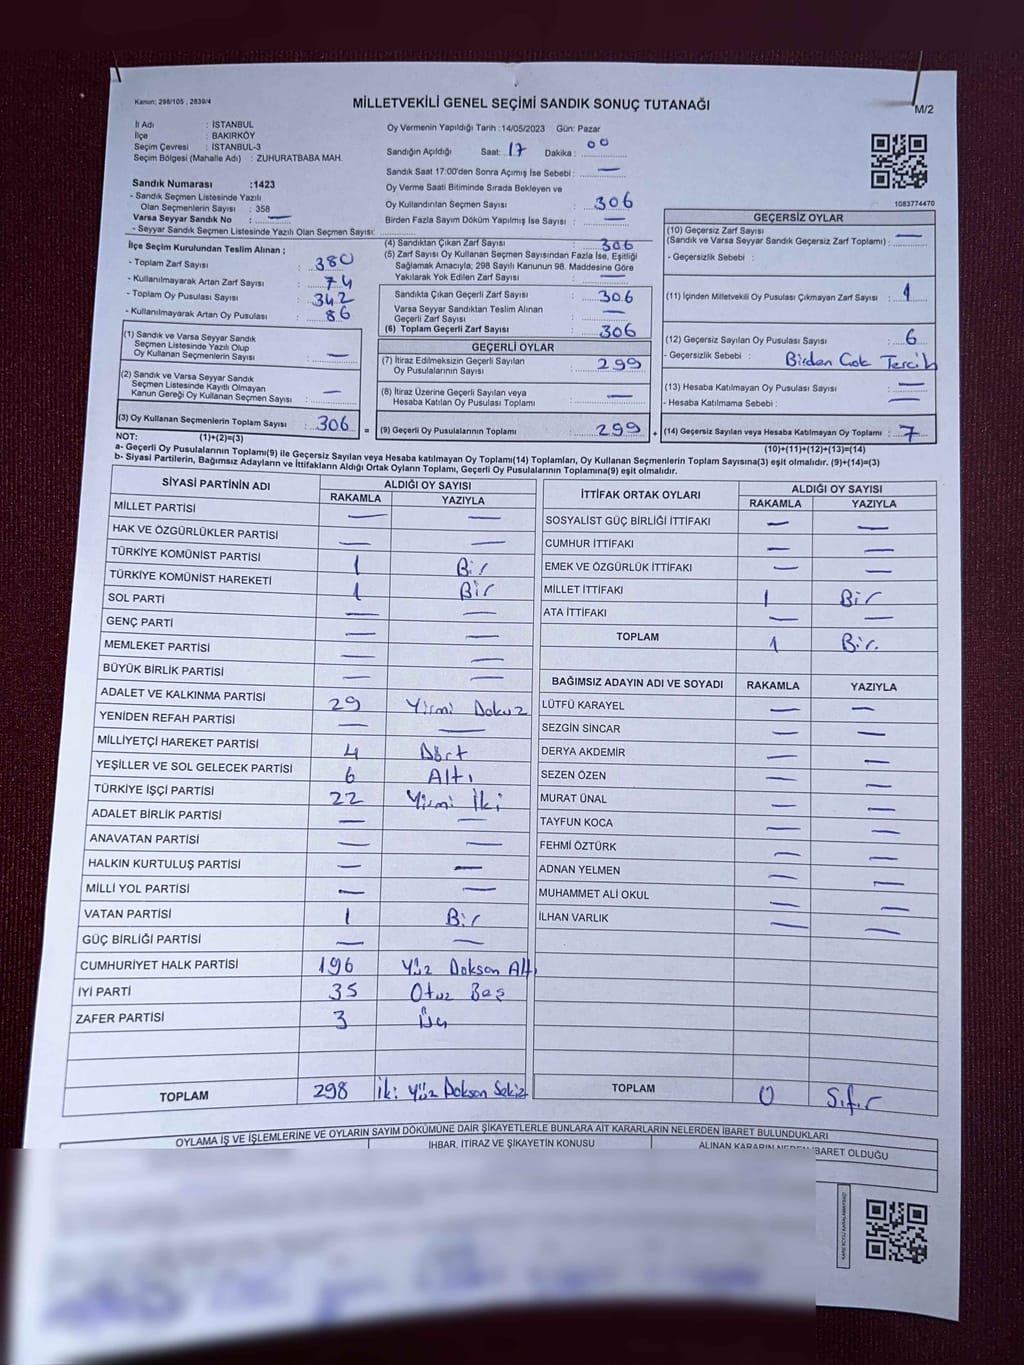 Kanun; 298/105 , 2839/4
MİLLETVEKİLİ GENEL SEÇİMİ SANDIK SONUÇ TUTANAĞI
M/2
İl Adı : İSTANBUL
İlçe : BAKIRKÖY
Seçim Çevresi : İSTANBUL-3
Seçim Bölgesi (Mahalle Adı) : ZUHURATBABA MAH.
Sandık Numarası :1423
- Sandık Seçmen Listesinde Yazılı
Olan Seçmenlerin Sayısı : 358
Varsa Seyyar Sandık No : —
- Seyyar Sandık Seçmen Listesinde Yazılı Olan Seçmen Sayısı:
Oy Vermenin Yapıldığı Tarih :14/05/2023 Gün: Pazar
Sandığın Açıldığı Saat: 17 Dakika : 00
Sandık Saat 17:00'den Sonra Açımış İse Sebebi : —
Oy Verme Saati Bitiminde Sırada Bekleyen ve
Oy Kullandırılan Seçmen Sayısı : 306
Birden Fazla Sayım Döküm Yapılmış İse Sayısı : —
1083774470
İlçe Seçim Kurulundan Teslim Alınan ;
- Toplam Zarf Sayısı : 380
- Kullanılmayarak Artan Zarf Sayısı : 74
- Toplam Oy Pusulası Sayısı : 342
- Kullanılmayarak Artan Oy Pusulası : 86
(1) Sandık ve Varsa Seyyar Sandık
Seçmen Listesinde Yazılı Olup
Oy Kullanan Seçmenlerin Sayısı : —
(2) Sandık ve Varsa Seyyar Sandık
Seçmen Listesinde Kayıtlı Olmayan
Kanun Gereği Oy Kullanan Seçmen Sayısı : —
(3) Oy Kullanan Seçmenlerin Toplam Sayısı : 306
(4) Sandıktan Çıkan Zarf Sayısı : 306
(5) Zarf Sayısı Oy Kullanan Seçmen Sayısından Fazla İse, Eşitliği
Sağlamak Amacıyla; 298 Sayılı Kanunun 98. Maddesine Göre
Yakılarak Yok Edilen Zarf Sayısı : —
Sandıkta Çıkan Geçerli Zarf Sayısı : 306
Varsa Seyyar Sandıktan Teslim Alınan
Geçerli Zarf Sayısı : —
(6) Toplam Geçerli Zarf Sayısı : 306
GEÇERLİ OYLAR
(7) İtiraz Edilmeksizin Geçerli Sayılan
Oy Pusulalarının Sayısı : 299
(8) İtiraz Üzerine Geçerli Sayılan veya
Hesaba Katılan Oy Pusulası Toplamı : —
= (9) Geçerli Oy Pusulalarının Toplamı : 299 +
GEÇERSİZ OYLAR
(10) Geçersiz Zarf Sayısı
(Sandık ve Varsa Seyyar Sandık Geçersiz Zarf Toplamı) : —
- Geçersizlik Sebebi :
(11) İçinden Milletvekili Oy Pusulası Çıkmayan Zarf Sayısı : 1
(12) Geçersiz Sayılan Oy Pusulası Sayısı : 6
- Geçersizlik Sebebi : Birden Çok Tercih
(13) Hesaba Katılmayan Oy Pusulası Sayısı : —
- Hesaba Katılmama Sebebi : —
(14) Geçersiz Sayılan veya Hesaba Katılmayan Oy Toplamı : 7
NOT: (1)+(2)=(3)
(10)+(11)+(12)+(13)=(14)
a- Geçerli Oy Pusulalarının Toplamı(9) ile Geçersiz Sayılan veya Hesaba katılmayan Oy Toplamı(14) Toplamları, Oy Kullanan Seçmenlerin Toplam Sayısına(3) eşit olmalıdır. (9)+(14)=(3)
b- Siyasi Partilerin, Bağımsız Adayların ve İttifakların Aldığı Ortak Oyların Toplamı, Geçerli Oy Pusulalarının Toplamına(9) eşit olmalıdır.
SİYASİ PARTİNİN ADI ALDIĞI OY SAYISI
RAKAMLA YAZIYLA
MİLLET PARTİSİ — —
HAK VE ÖZGÜRLÜKLER PARTİSİ — —
TÜRKİYE KOMÜNİST PARTİSİ 1 Bir
TÜRKİYE KOMÜNİST HAREKETİ 1 Bir
SOL PARTİ — —
GENÇ PARTİ — —
MEMLEKET PARTİSİ — —
BÜYÜK BİRLİK PARTİSİ — —
ADALET VE KALKINMA PARTİSİ 29 Yirmi Dokuz
YENİDEN REFAH PARTİSİ — —
MİLLİYETÇİ HAREKET PARTİSİ 4 Dört
YEŞİLLER VE SOL GELECEK PARTİSİ 6 Altı
TÜRKİYE İŞÇİ PARTİSİ 22 Yirmi İki
ADALET BİRLİK PARTİSİ — —
ANAVATAN PARTİSİ — —
HALKIN KURTULUŞ PARTİSİ — —
MİLLİ YOL PARTİSİ — —
VATAN PARTİSİ 1 Bir
GÜÇ BİRLİĞİ PARTİSİ — —
CUMHURİYET HALK PARTİSİ 196 Yüz Doksan Altı
İYİ PARTİ 35 Otuz Beş
ZAFER PARTİSİ 3 Üç
TOPLAM 298 İki Yüz Doksan Sekiz
İTTİFAK ORTAK OYLARI ALDIĞI OY SAYISI
RAKAMLA YAZIYLA
SOSYALİST GÜÇ BİRLİĞİ İTTİFAKI — —
CUMHUR İTTİFAKI — —
EMEK VE ÖZGÜRLÜK İTTİFAKI — —
MİLLET İTTİFAKI 1 Bir
ATA İTTİFAKI — —
TOPLAM 1 Bir.
BAĞIMSIZ ADAYIN ADI VE SOYADI RAKAMLA YAZIYLA
LÜTFÜ KARAYEL — —
SEZGİN SİNCAR — —
DERYA AKDEMİR — —
SEZEN ÖZEN — —
MURAT ÜNAL — —
TAYFUN KOCA — —
FEHMİ ÖZTÜRK — —
ADNAN YELMEN — —
MUHAMMET ALİ OKUL — —
İLHAN VARLIK — —
TOPLAM 0 Sıfır
OYLAMA İŞ VE İŞLEMLERİNE VE OYLARIN SAYIM DÖKÜMÜNE DAİR ŞİKAYETLERLE BUNLARA AİT KARARLARIN NELERDEN İBARET BULUNDUKLARI
İHBAR, İTİRAZ VE ŞİKAYETİN KONUSU
ALINAN KARARIN NEDEN İBARET OLDUĞU